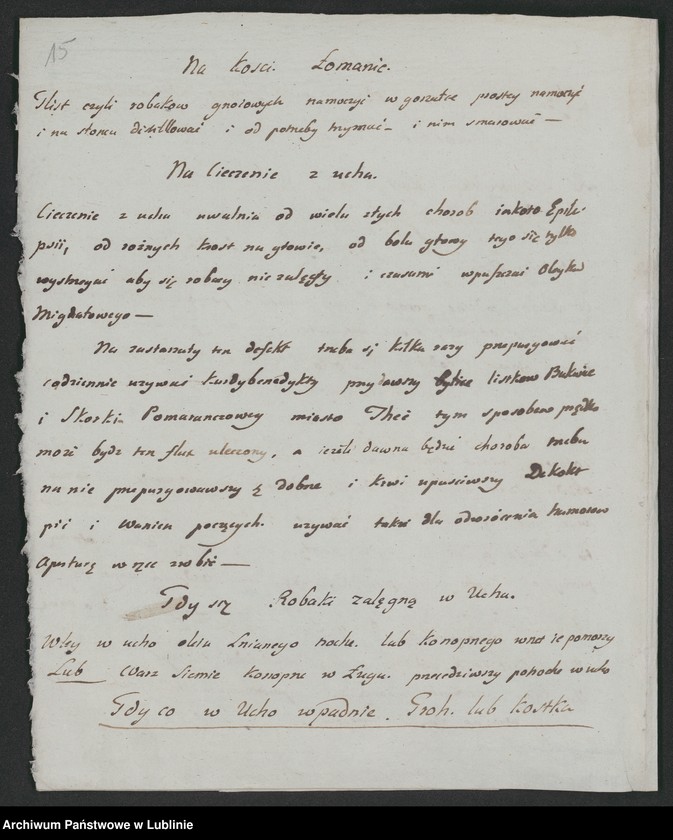 15
Na Kosci Łomanie.
Glist czyli robakow gnoiowych namoczyć w gorzałce prostey namoczyć
i na słoncu distillować i od potrzeby trzymać i nim smarować —
Na Cieczenie z ucha.
Cieczenie z ucha uwalnia od wielu złych chorob iakoto Epile-
psii, od rożnych krost na głowie, od bolu głowy tego się tylko
wystrzegać aby się robacy nie zalęgły i czasami wpuszczać Oleyku
Migdałowego —
Na zastarzały ten defekt trzeba się kilka razy przepurgować
codziennie używać Kardybenedykty przydawszy listkow Bukwice
i Skorki Pomaranczowey miasto Theé tym sposobem prędko
może bydz ten flux uleczony, a ieżeli dawna będzie choroba trzeba
na nie przepurgowawszy się dobrze i krwi upuściwszy Dekokt
pić i Wanien używać także dla odwrócenia humorow
Aperturę w ręce zrobić —
Gdy się Robaki zalęgną w Uchu.
Wley w ucho oleiu Lnianego lub Konopnego wraz ie pomorzy
Lub Warz Siemie Konopne w Ługu. przecedziwszy w ucho
Gdy co w Ucho wpadnie. Groh. lub Kostka
Archiwum Państwowe w Lublinie